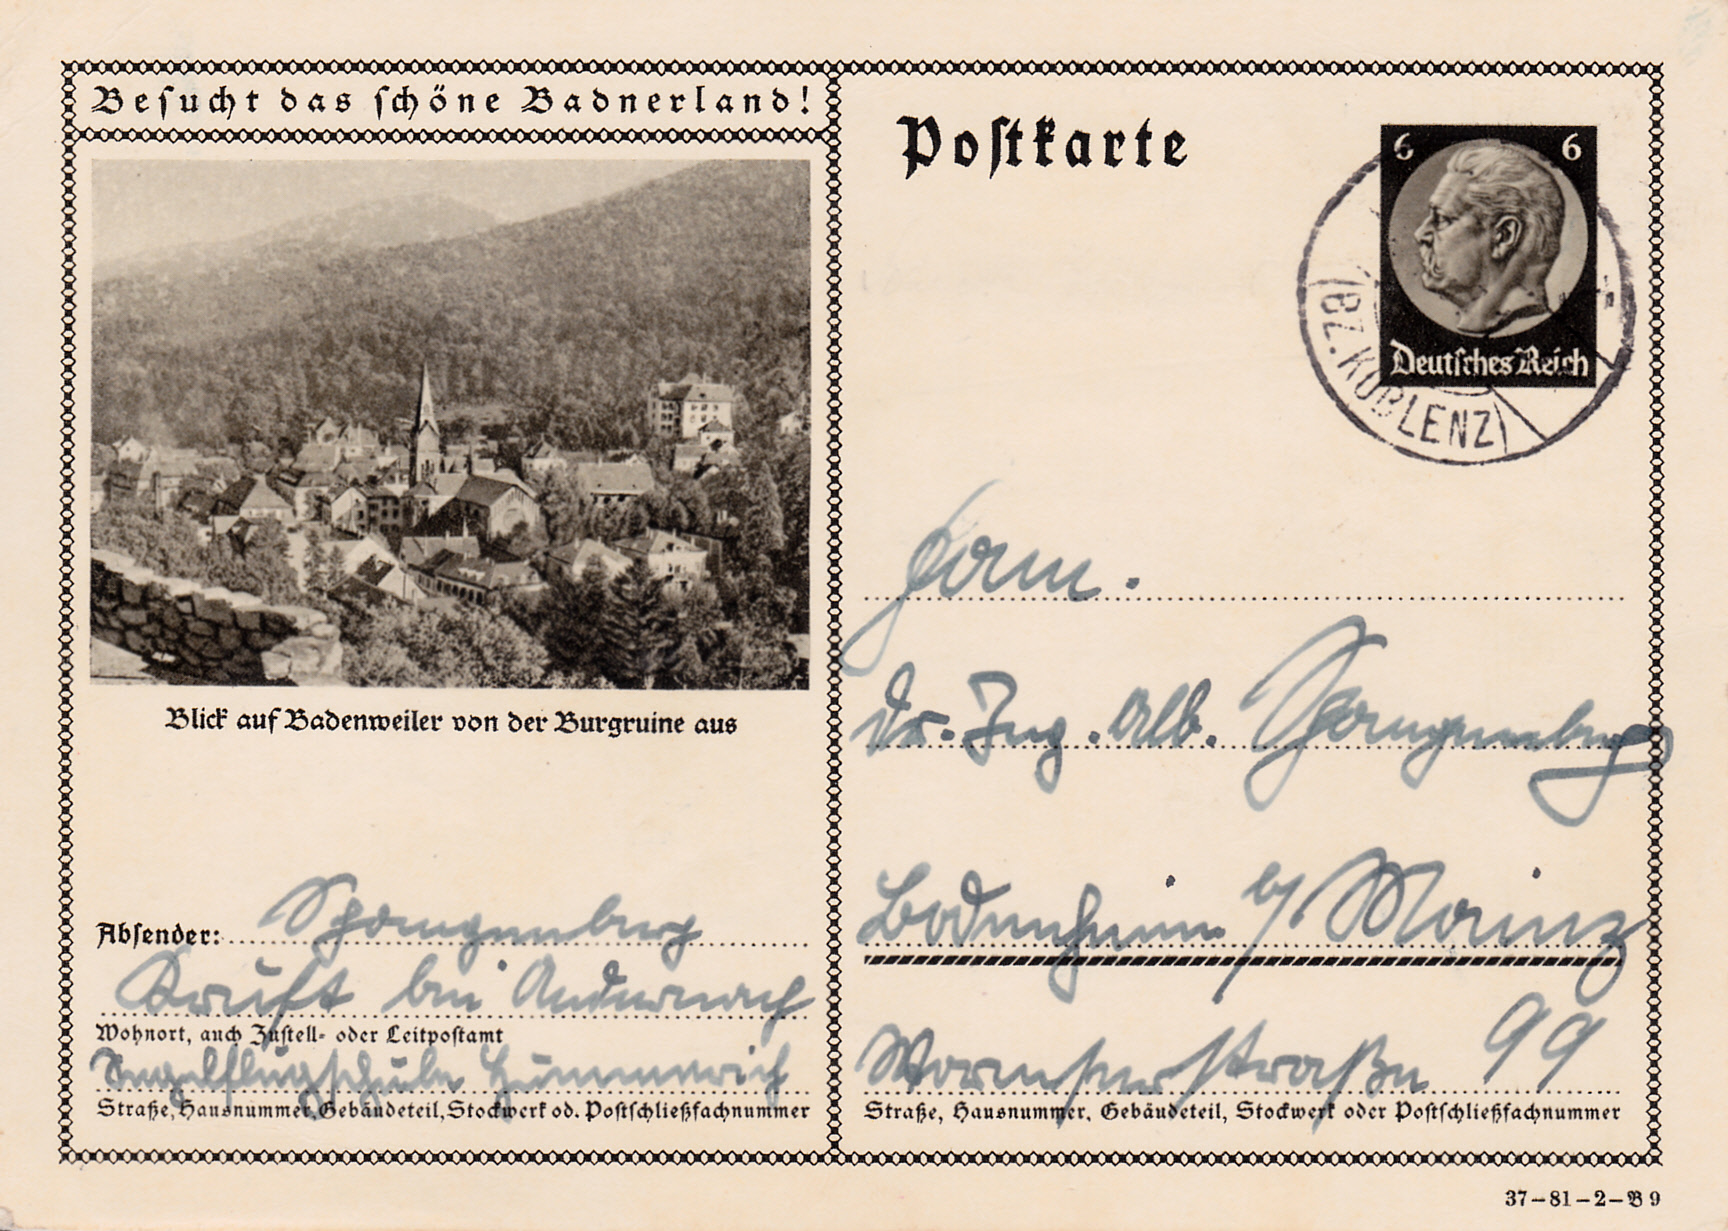 Besucht das schöne Badnerland!
Blick auf Badenweiler von der Burgruine aus
Absender: Spangenberg
Kruft bei Andernach
Wohnort, auch Zustell- oder Leitpostamt
Segelflugschule Hummerich
Straße, Hausnummer, Gebäudeteil, Stockwerk od. Postschließfachnummer
Postkarte
6 6
Deutsches Reich
(BZ. KOBLENZ)
Dr. Ing. Alb. Spangenberg
Bodenheim b/ Mainz
Wormserstraße 99
Straße, Hausnummer, Gebäudeteil, Stockwerk oder Postschließfachnummer
37-81-2-B9